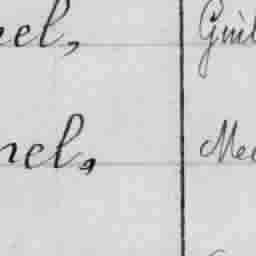 eel, Guil
nel, Mec